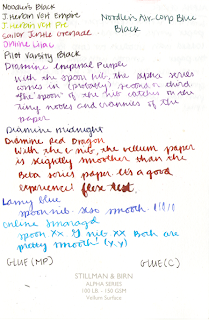 Noodler's Black
J. Herbin Vert Empire
J. Herbin Vert Pre
Sailor Jentle Grenade
Online Lilac
Pilot Varsity Black
Noodler's Air-Corp Blue
Black
Diamine Imperial Purple
With the spoon nib, the alpha series
comes in (probably) second or third
The "spoon" of the nib catches on the
tiny nooks and crannies of the
paper
Diamine Midnight
Diamine Red Dragon
With the C nib, the vellum paper
is slightly smoother than the
Beta series paper. It's a good
experience! flex test
Lamy Blue
spoon nib also smooth
Online Smaragd
spoon XX. nib XX Both are
pretty smooth (X.Y)
GLUE (MP)
GLUE (C)
STILLMAN & BIRN
ALPHA SERIES
100 LB · 150 GSM
Vellum Surface